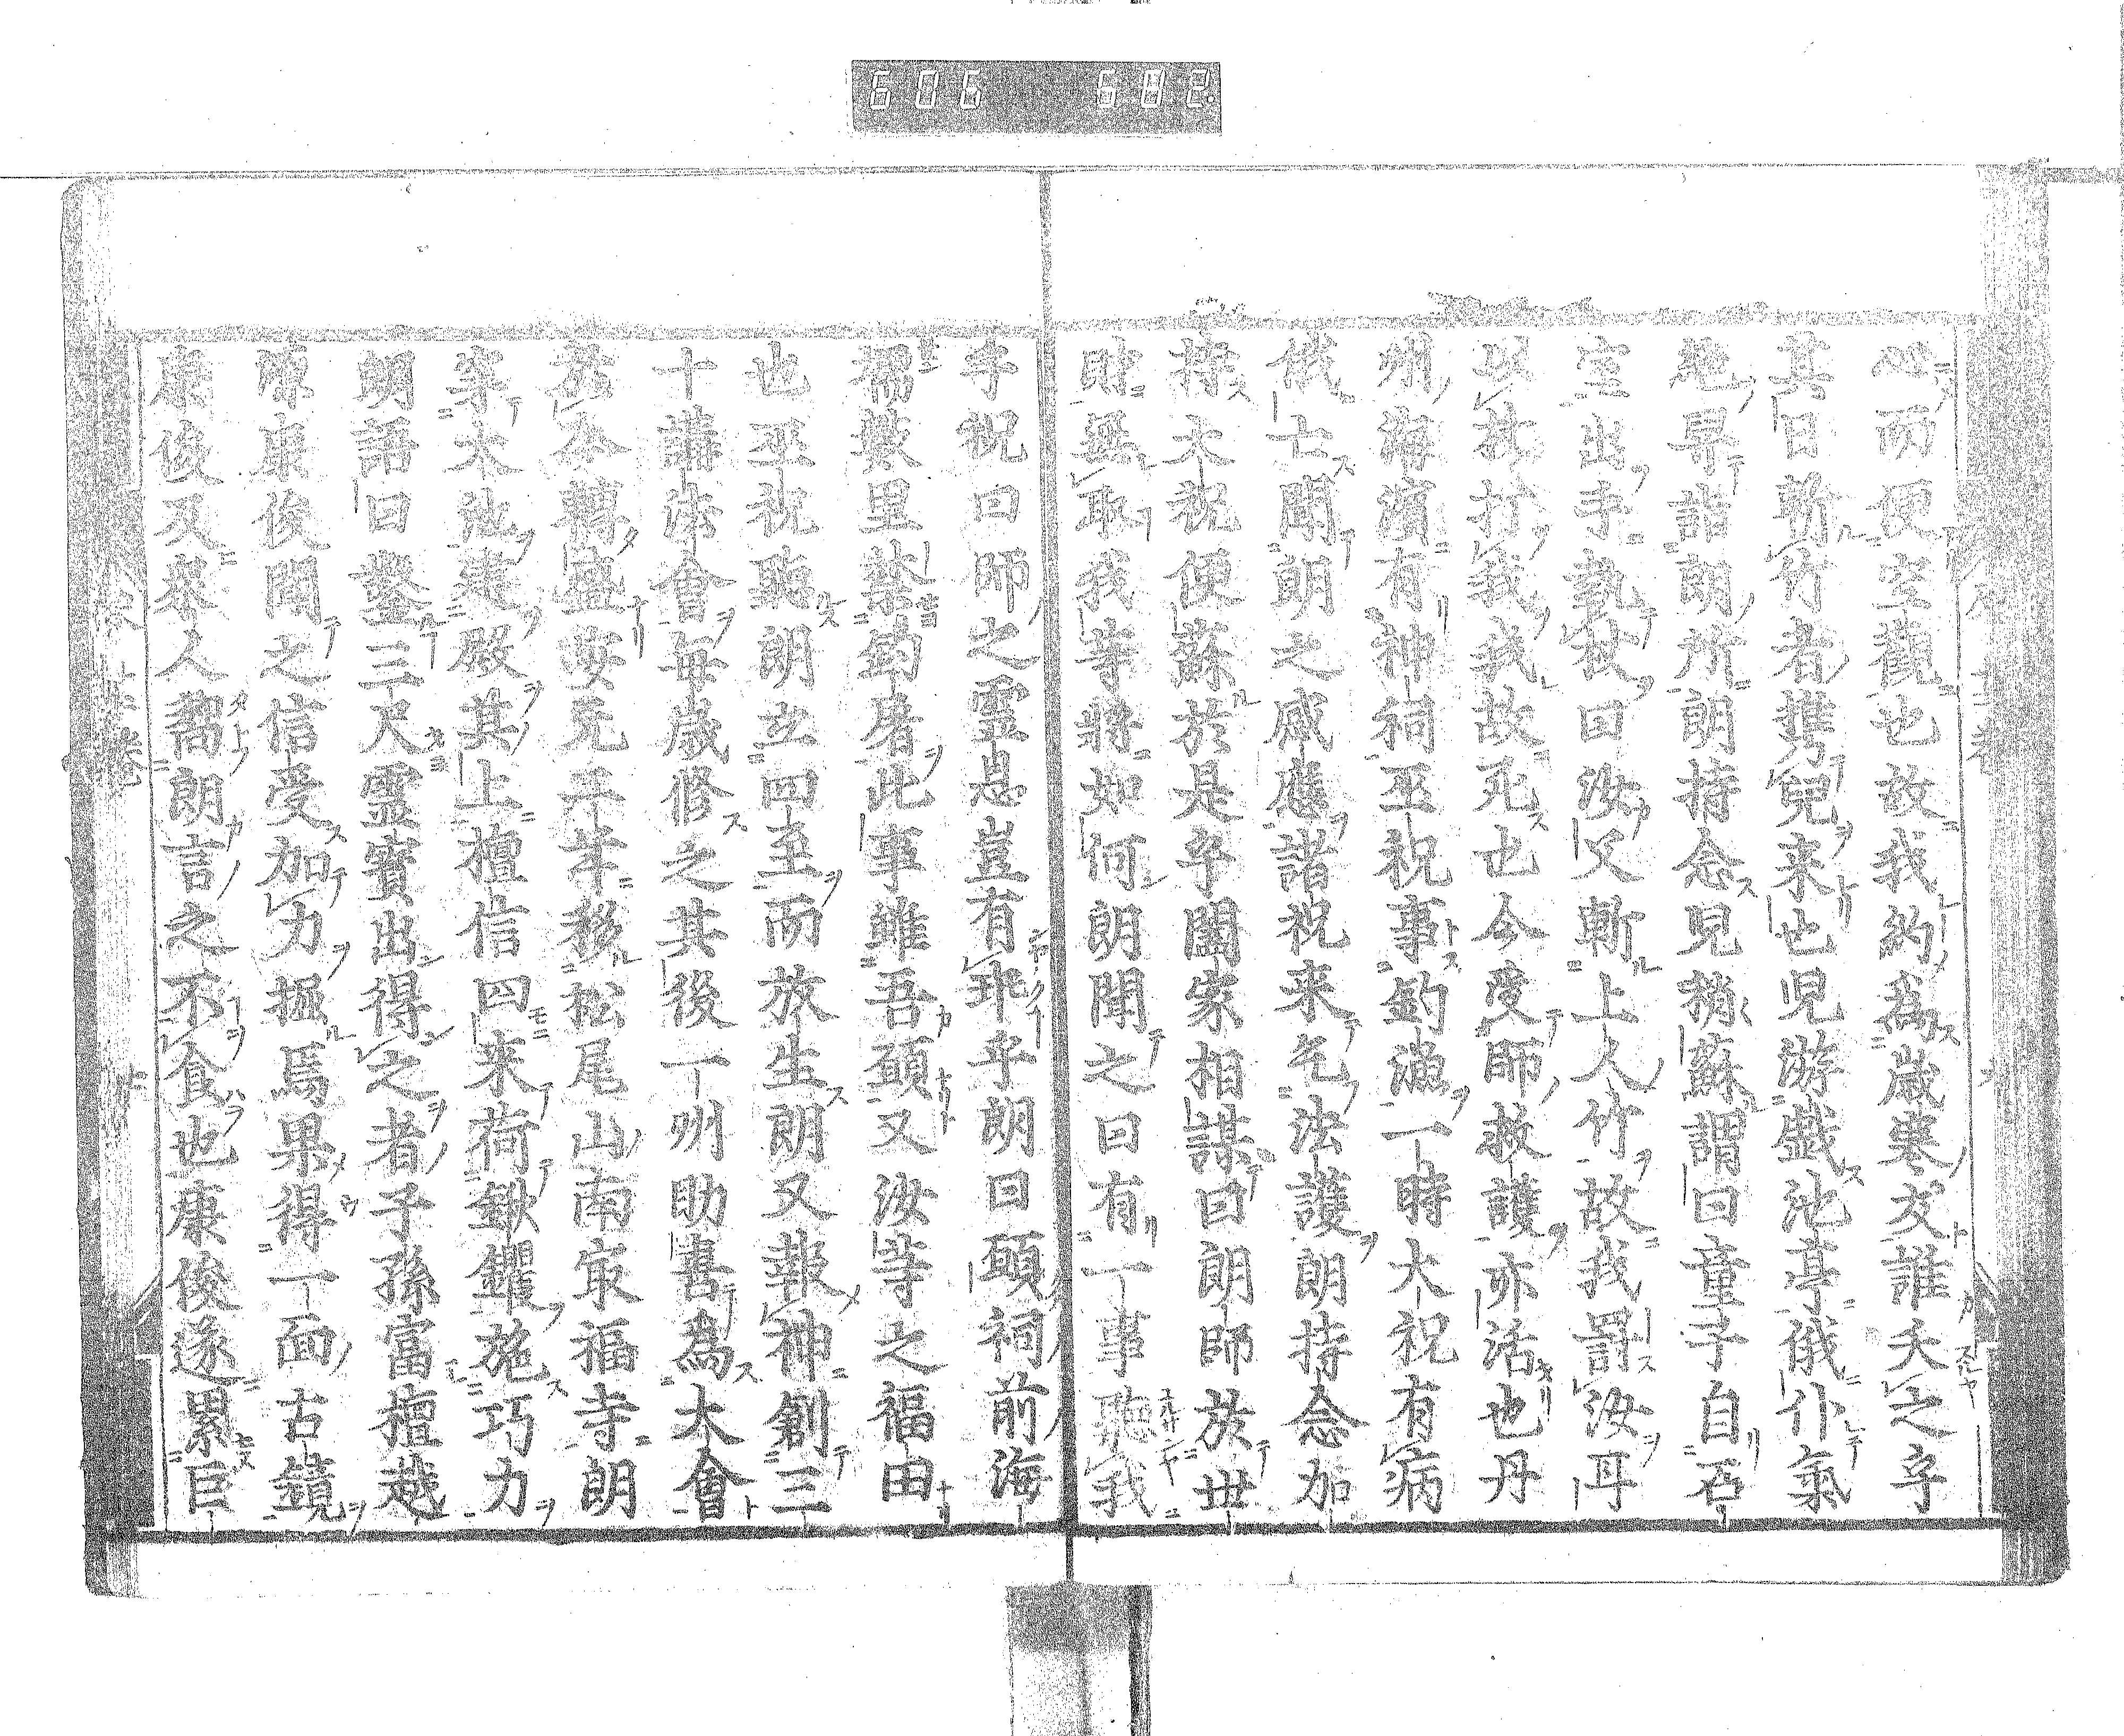 606 602
心而便空觀也故我約爲歳寒友誰夭之字
其日斬竹者携兒来也児游戯池亭俄仆氣
絶舁詣朗所朗持念兒稍蘇謂曰童子自石
室出手執杖曰汝父斬上人竹故我罰汝耳
以杖打我我故死也今受師救護亦活也丹
州海濱有神祠巫祝事釣漁一時大祝有病
俄亡聞朗之感應諸祝来乞法護朗持念加
持大祝便蘇於是乎闔家相謀曰朗師於世
財無取我等將如何朗聞之曰有一事聽我
乎祝曰師之靈急豈有乖乎朗曰願祠前海
濡數里禁釣屠此事雖吾願又汝等之福由
也巫祝聽朗立四至而放生朗又報神創三
十講法會毎歳修之其後一州助喜爲大會
於今轉盛安元二年移松尾山南最福寺朗
穿大池建殿其上檀信四来荷鍬钁施巧力
朗語曰鑿三尺靈寶出得之者子孫富檀越
康俊聞之信受加力掘焉果得一面古鏡
康俊又舉人齅朗言之不食也康俊遂累巨